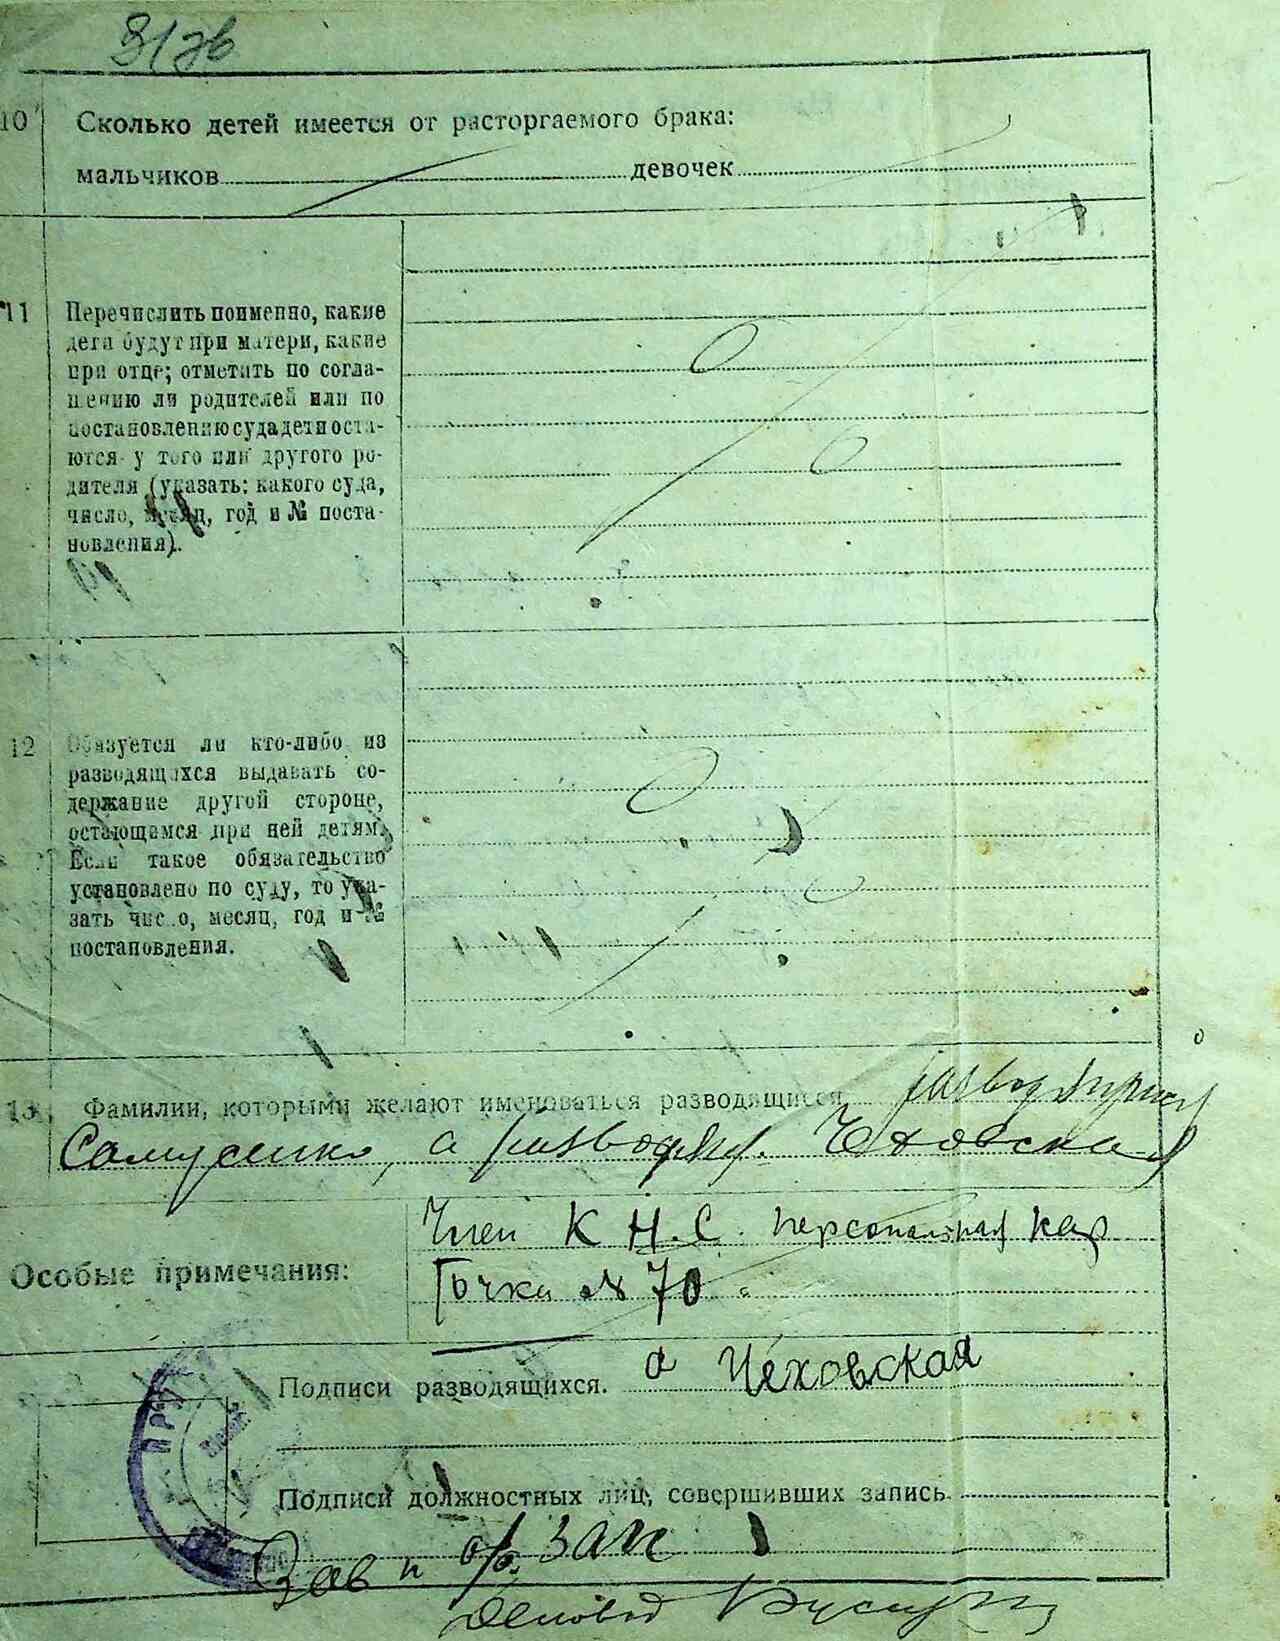 10 Сколько детей имеется от расторгаемого брака:
мальчиков девочек
11 Перечислить поименно, какие
дети будут при матери, какие
при отце; отметить по согла-
шению ли родителей или по
постановлению суда дети оста-
ются у того или другого ро-
дителя (указать: какого суда,
число, месяц, год и № поста-
новления).
12 Обязуется ли кто-либо из
разводящихся выдавать со-
держание другой стороне,
остающимся при ней детям.
Если такое обязательство
установлено по суду, то ука-
зать число, месяц, год и №
постановления.
13. Фамилии, которыми желают именоваться разводящиеся
Самусенко, а Чеховская
Особые примечания:
Член К Н.С. персональная кар
точка № 70
Подписи разводящихся. а Чеховская
Подписи должностных лиц, совершивших запись
Зав п/о Загс